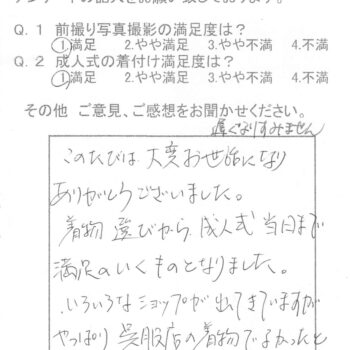 アンケートの記入をお願い致しております。
Q.1 前撮り写真撮影の満足度は?
①満足 2.やや満足 3.やや不満 4.不満
Q.2 成人式の着付け満足度は?
①満足 2.やや満足 3.やや不満 4.不満
その他 ご意見、ご感想をお聞かせください。
遅くなりすみません
このたびは 大変お世話になり
ありがとうございました。
着物 選びから 成人式 当日まで
満足のいくものとなりました。
いろいろな ショップが 出てきていますが
やっぱり 呉服店の着物でよかったと